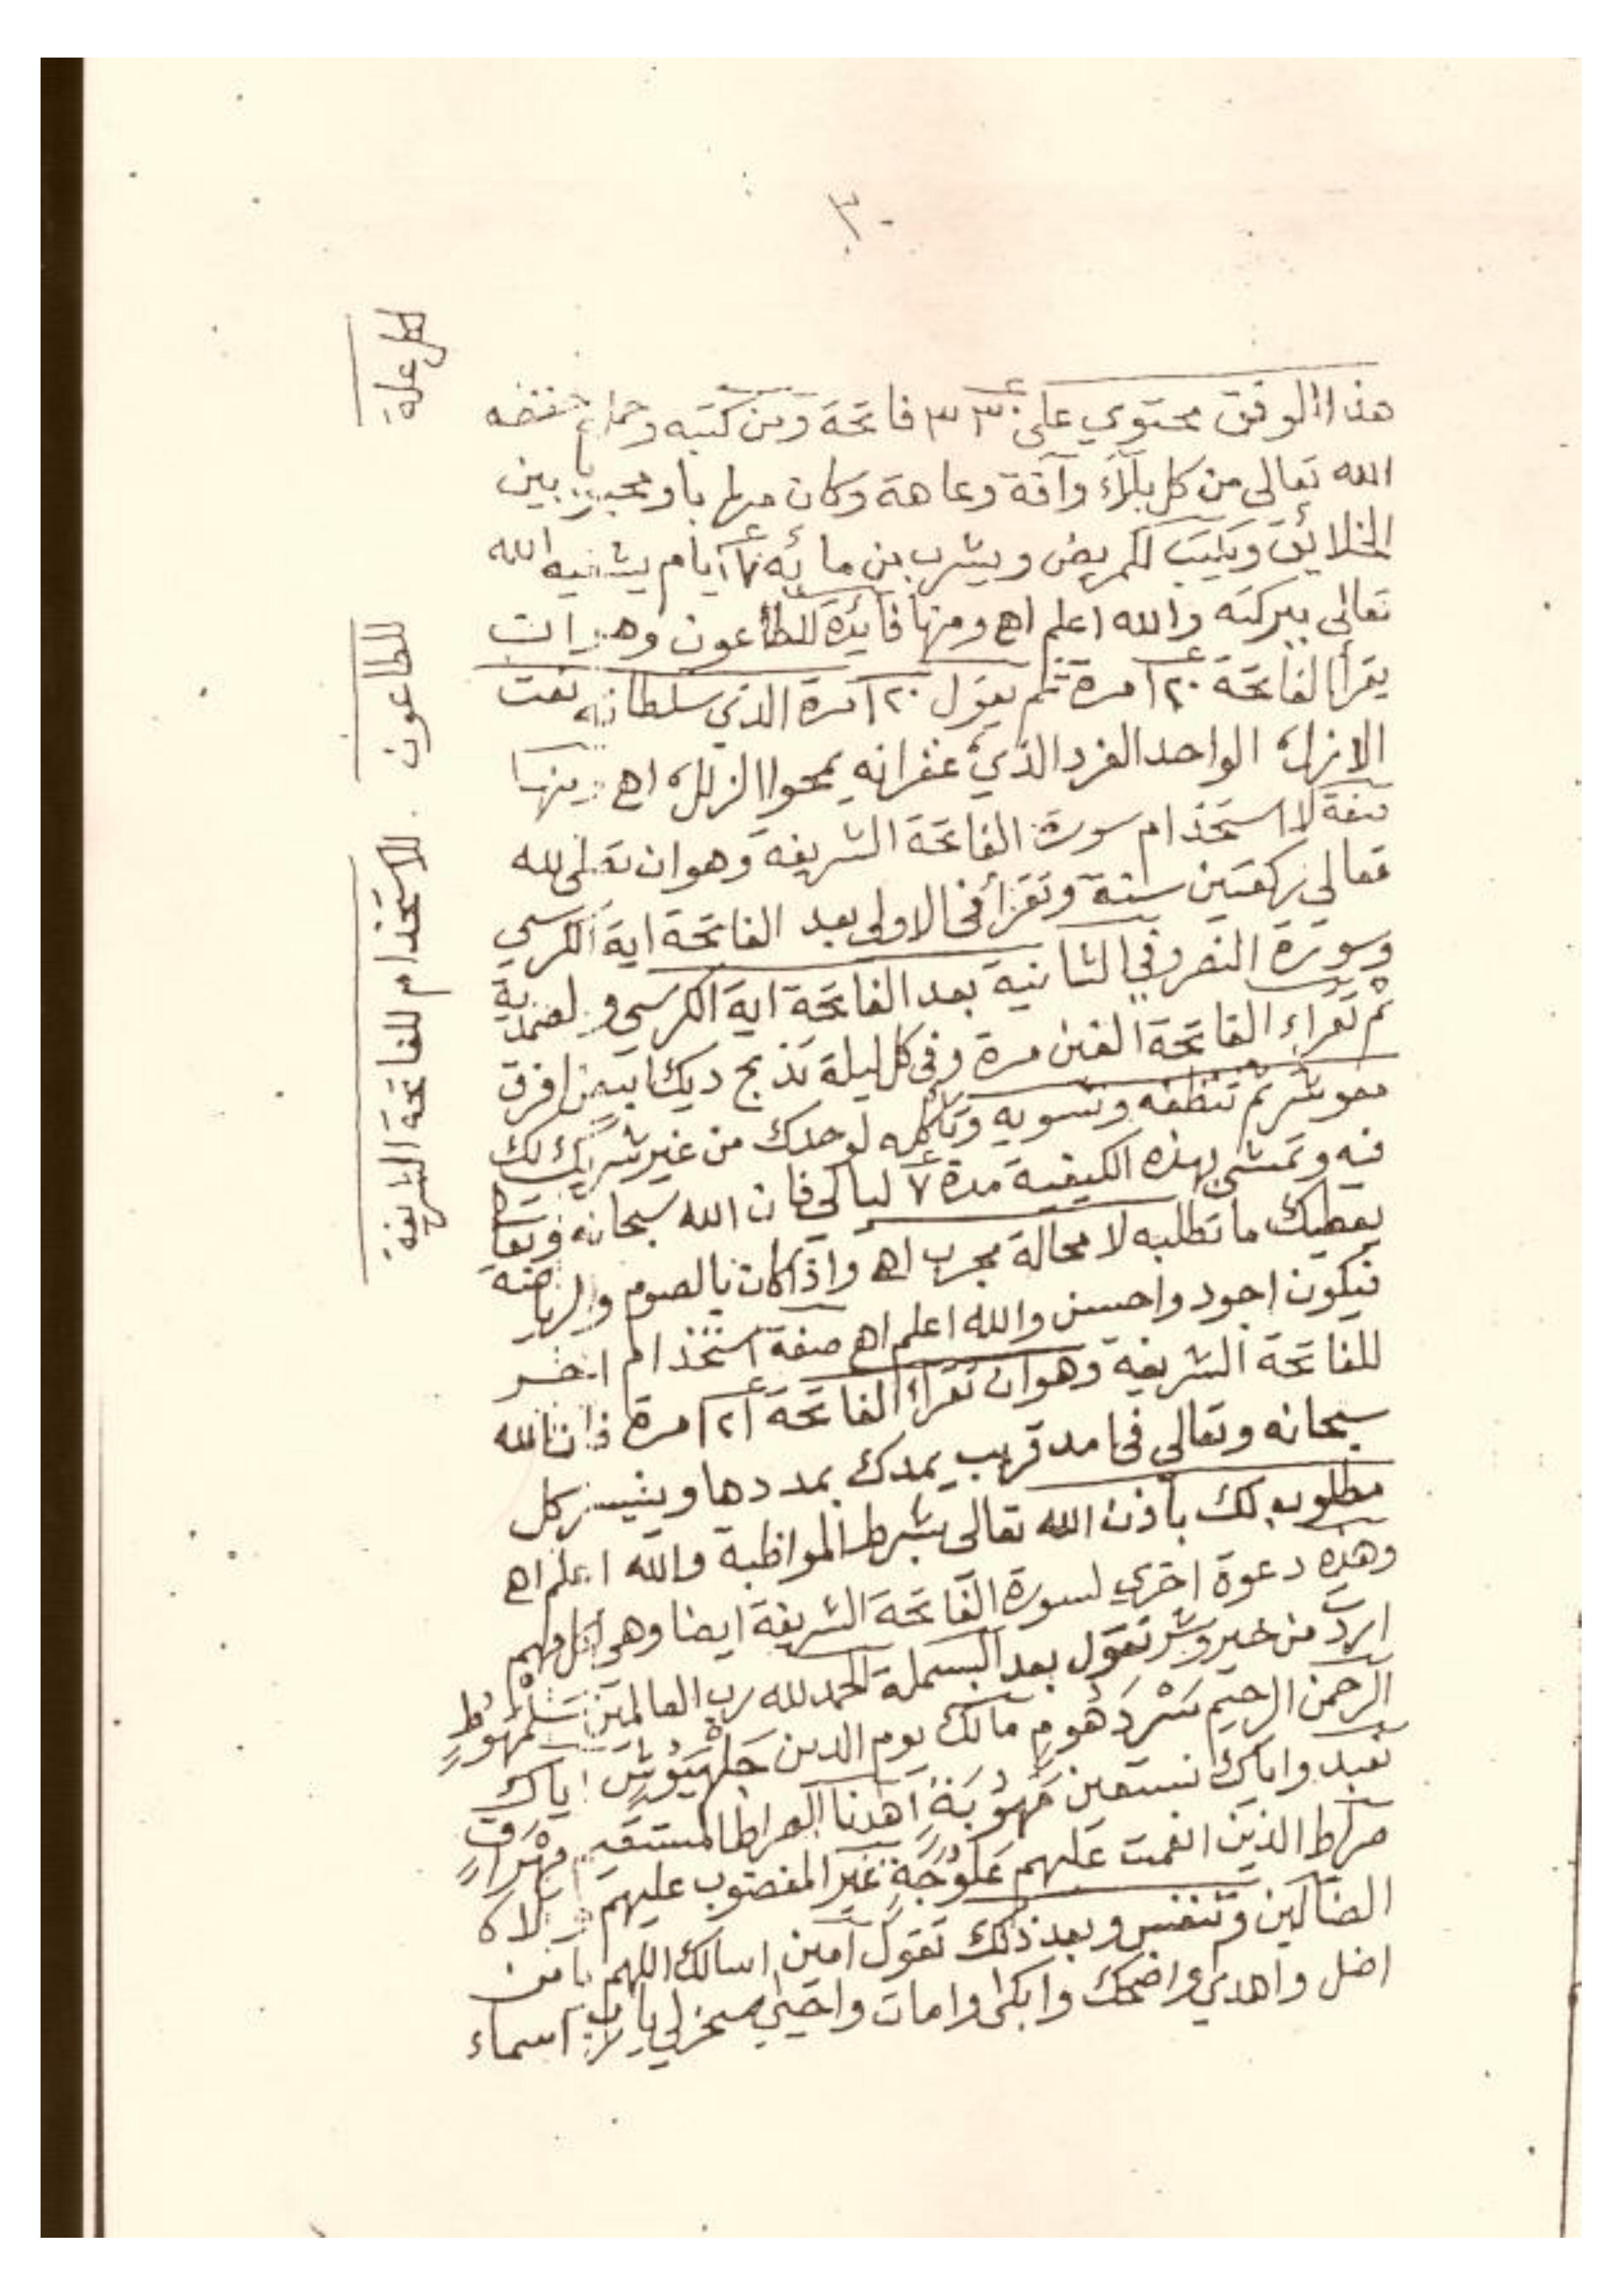 ٣٠
هذا الوفق محتوي على ٣٣٠ فاتحة ومن كتبه وحمله حفضه
الله تعالى من كل بلاء وآفة وعاهة وكان مهابا ومحببا بين
الخلائق ويكتب للمريض ويشرب من مائه ايام يشفيه الله
تعالى ببركته والله اعلم اهـ ومنها فائدة للطاعون وهي ان
يقرأ الفاتحة ١٢٠ مرة ثم يقول ١٢٠ مرة الذي سلطانه نعت
الازل الواحد الفرد الذي غفرانه يمحوا الزلل اهـ ومنها
صفة لاستخدام سورة الفاتحة الشريفة وهو ان تصلى لله
تعالى ركعتين سنة وتقرأ في الاولى بعد الفاتحة اية الكرسي
وسورة النصر وفي الثانية بعد الفاتحة اية الكرسي والصمدية
ثم تقراء الفاتحة الفين مرة وفي كل ليلة تذبح ديك ابيض افرق
معوشر ثم تنظفه وتسويه وتأكله لوحدك من غير شريك لك
فيه وتمشي بهذه الكيفية مدة ٧ ليالي فان الله سبحانه وتعالى
يعطيك ما تطلبه لا محالة مجرب اهـ واذا كان بالصوم والرياضة
فيكون اجود واحسن والله اعلم اهـ صفة استخذام اخر
للفاتحة الشريفة وهو ان تقراء الفاتحة ١٢١ مرة فان الله
سبحانه وتعالى في امد قريب يمدك بمددها ويتيسر كل
مطلوب لك باذن الله تعالى بشرط المواظبة والله اعلم اهـ
وهذه دعوة اخرى لسورة الفاتحة الشريفة ايضا وهي لكل مهم
اردت من خير وشر تقول بعد البسملة الحمد لله رب العالمين
الرحمن الرحيم مالك يوم الدين اياك
نعبد واياك نستعين اهدنا الصراط المستقيم
صراط الذين انعمت عليهم غير المغضوب عليهم ولا
الضالين وتنفس وبعد ذلك تقول آمين اسالك اللهم يا من
اضل واهدى واضحك وابكى وامات واحيى سخر لي يا رب اسماء
لكل علة
للطاعون
للاستخذام للفاتحة الشريفة